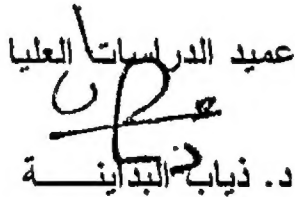 عميد الدراسات العليا
د. ذياب البداينـــة